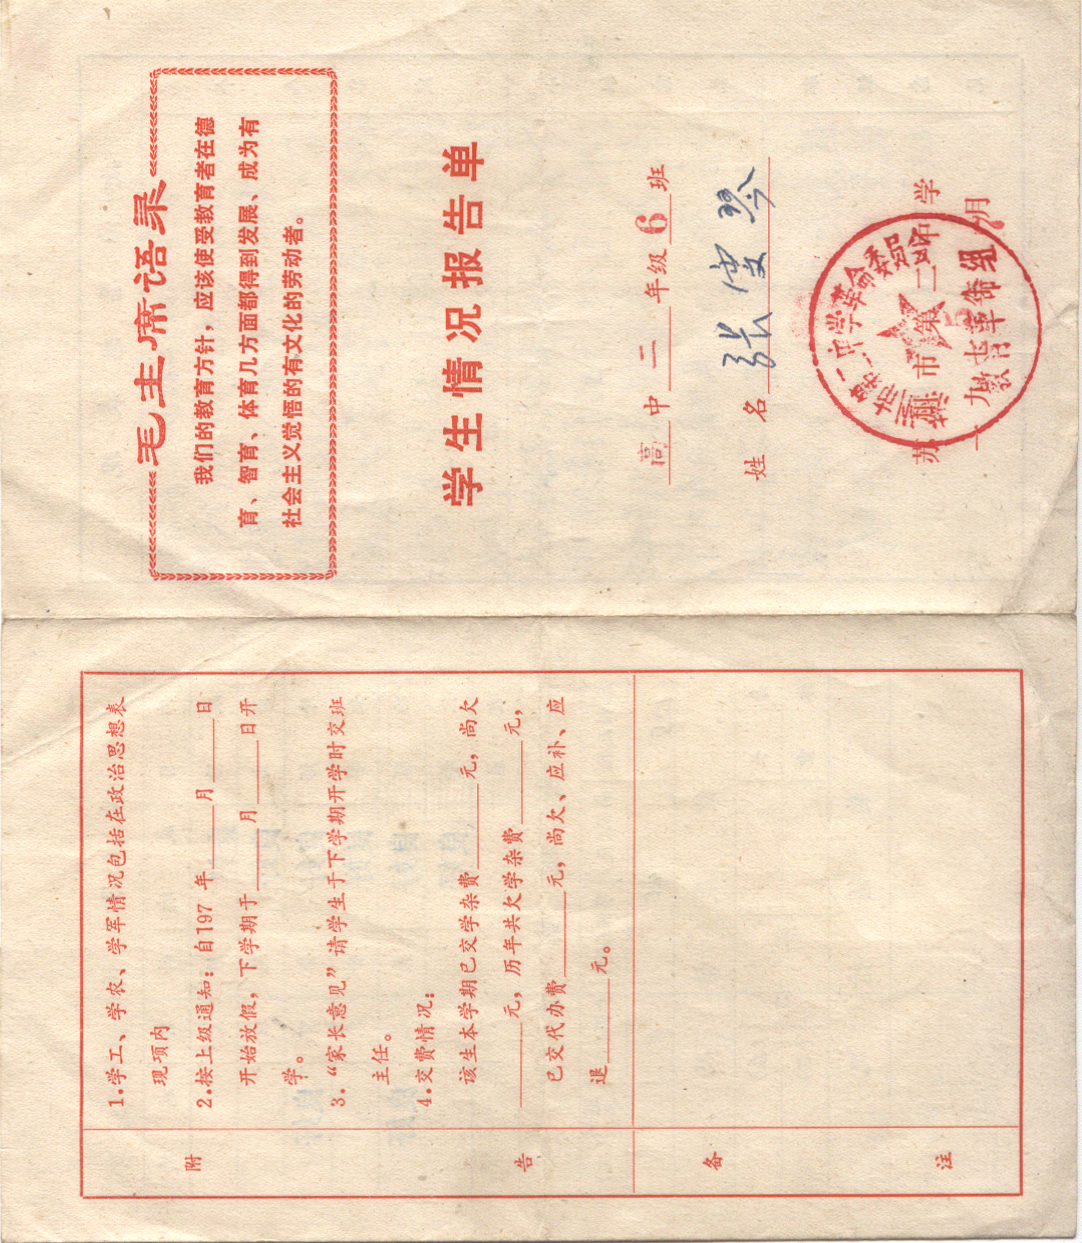 毛主席语录
我们的教育方针，应该使受教育者在德
育、智育、体育几方面都得到发展、成为有
社会主义觉悟的有文化的劳动者。
学生情况报告单
高中二年级6班
姓名 张雪琴
苏州市第二中学
一九七 月
附告
1.学工、学农、学军情况包括在政治思想表
现项内
2.按上级通知：自197 年 月 日
开始放假，下学期于 月 日开
学。
3.“家长意见”请学生于下学期开学时交班
主任。
4.交费情况：
该生本学期已交学杂费 元，尚欠
元，历年共欠学杂费 元，
已交代办费 元，尚欠、应补、应
退 元。
备注